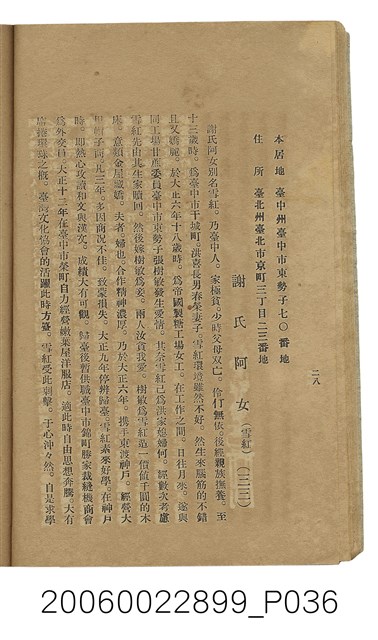 二八
本居地　臺中州臺中市東勢子七〇番地
住所　臺北州臺北市京町三丁目二二番地
謝氏阿女（雪紅）（三三）
謝氏阿女別名雪紅。乃臺中人。家極貧。少時父母双亡。伶仃無依。後經親族撫養。至
十三歲時。爲臺中市干城町。洪喜長男春榮妻子。雪紅環境雖然不好。然生來腦筋的不錯
且又嬌麗。於大正六年十八歲時。爲帝國製糖工場女工。在工作之間。日往月來。遂與
同工場甘蔗委員臺中市東勢子張樹敏發生愛情。其奈雪紅已爲洪家媳婦何。經數次考慮
雪紅先由其生家贖回。然後嫁樹敏爲妾。兩人汝貪我愛。樹敏爲雪紅造一價值千圓的木
床。意類金屋藏嬌。夫者婦也。合作精神濃厚。乃於大正六年。携手東渡神戶。經營大
甲帽子商。凡三年。多因商況不佳。致蒙損失。大正九年停辨歸臺。雪紅素來好學。在神戶
時。即熱心攻讀和文與漢文。成績大有可觀。歸臺後暫供職臺中市錦町勝家裁縫機商會
爲外交員。大正十三年在臺中市榮町自力經營嫩葉屋洋服店。適此時自由思想奔騰。大有
席捲環球之概。臺灣文化協會的活躍此時方熹。雪紅受此刺擊。于心沖々然。自是求學
20060022899_P036